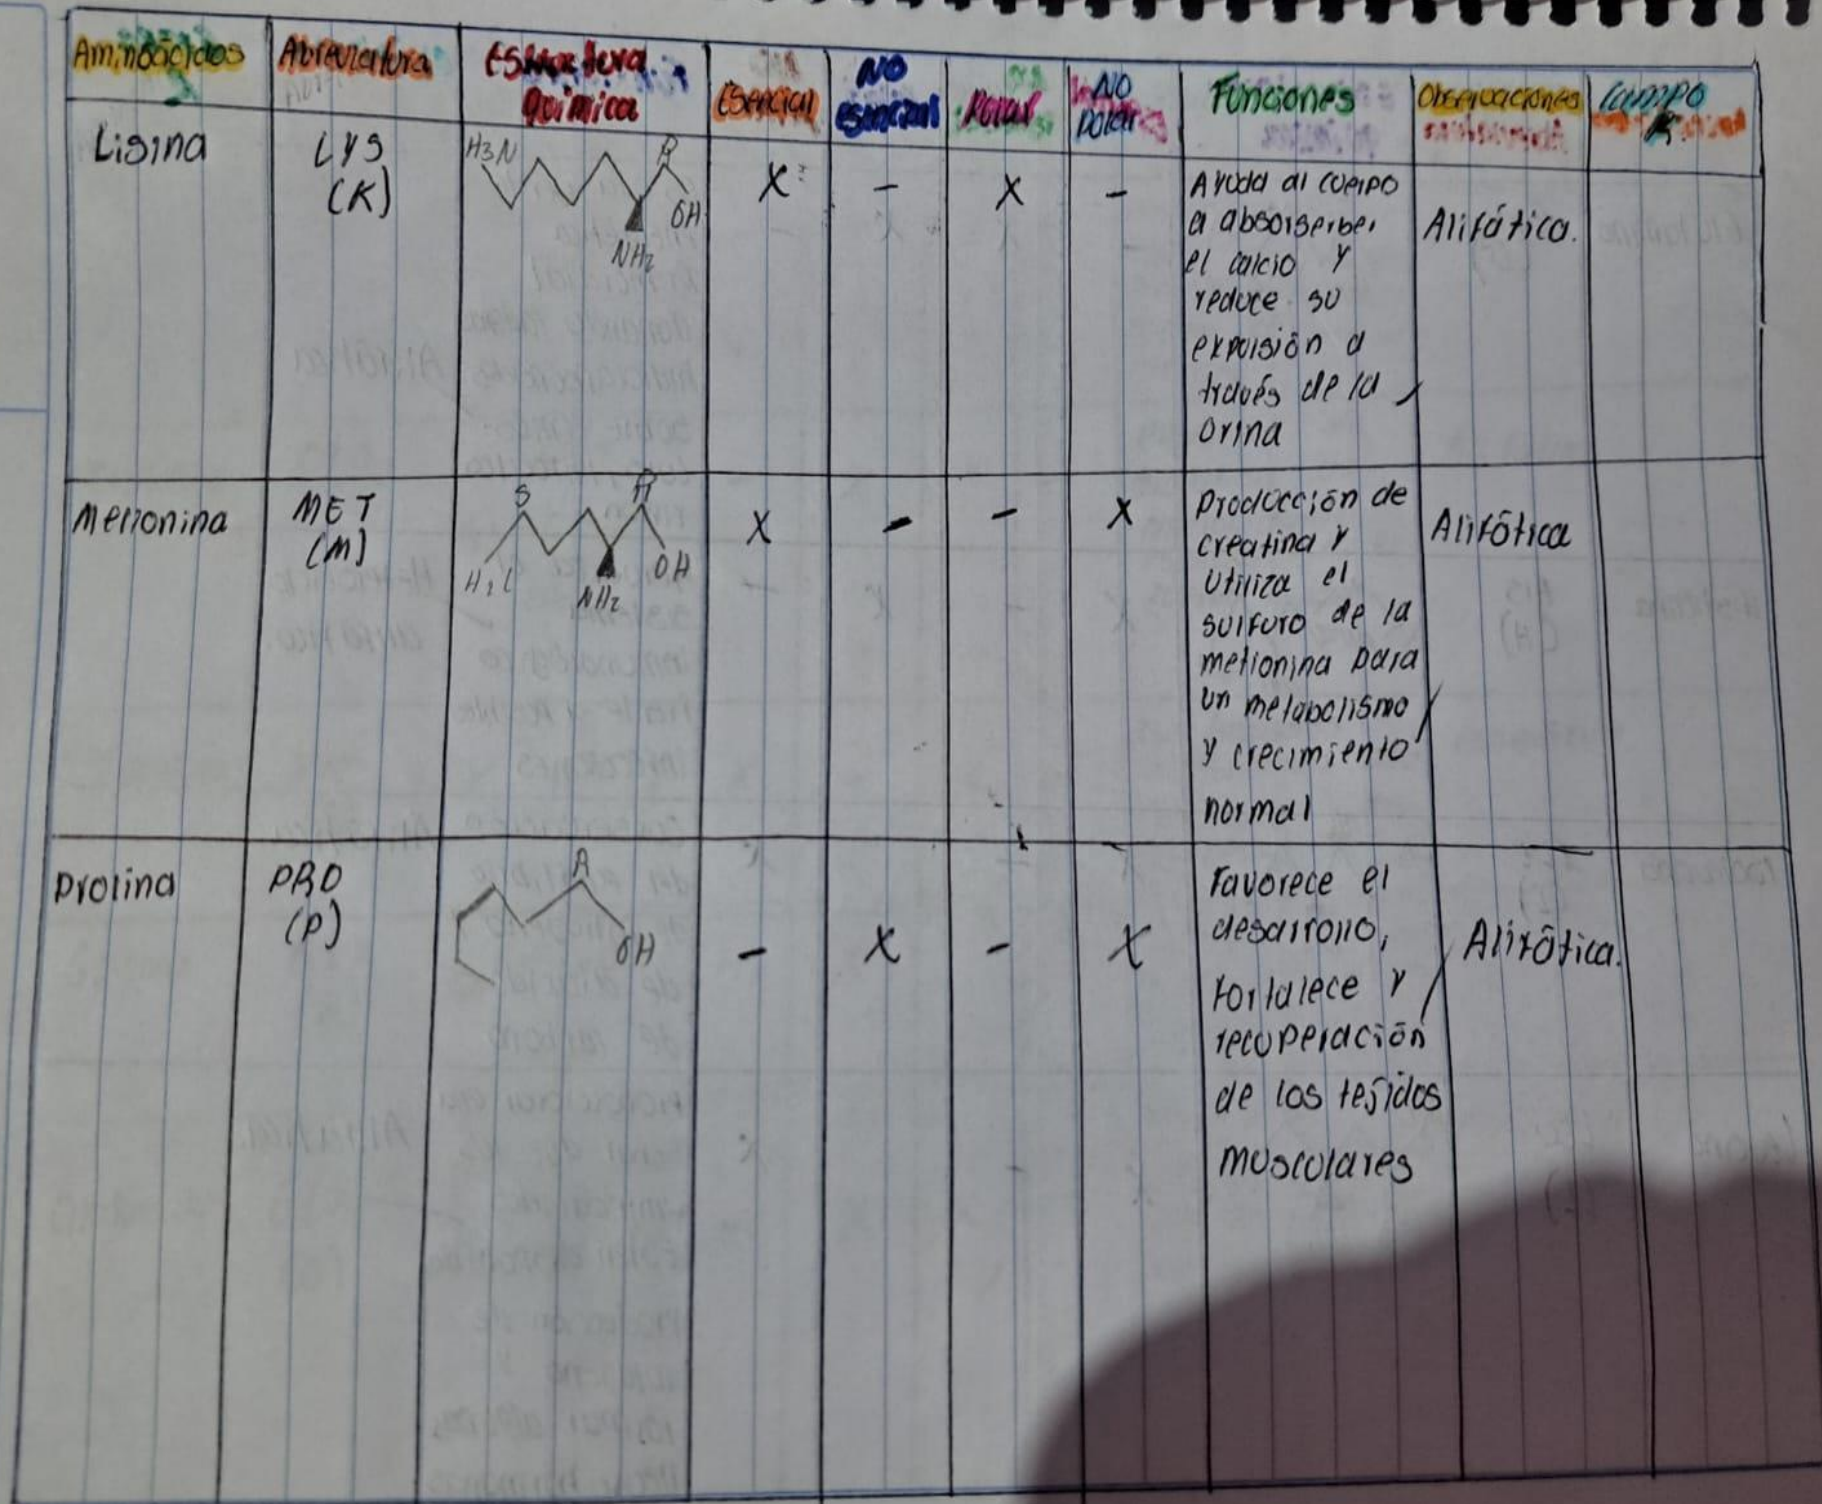 Aminoácidos
Abreviatura
Estructura
química
Esencial
NO
esencial
Polar
NO
polar
Funciones
Observaciones
Campo
R
Lisina
LYS
(K)
H3N
OH
NH2
X
-
X
-
Ayuda al cuerpo
a absorserber
el calcio y
reduce su
expulsión a
través de la
orina
Alifática.
Metionina
MET
(M)
S
H3C
NH2
OH
X
-
-
X
Producción de
creatina y
utiliza el
sulfuro de la
metionina para
un metabolismo
y crecimiento
normal
Alifática
Prolina
PRO
(P)
OH
-
X
-
X
Favorece el
desarrollo,
fortalece y
recuperación
de los tejidos
musculares
Alifática.